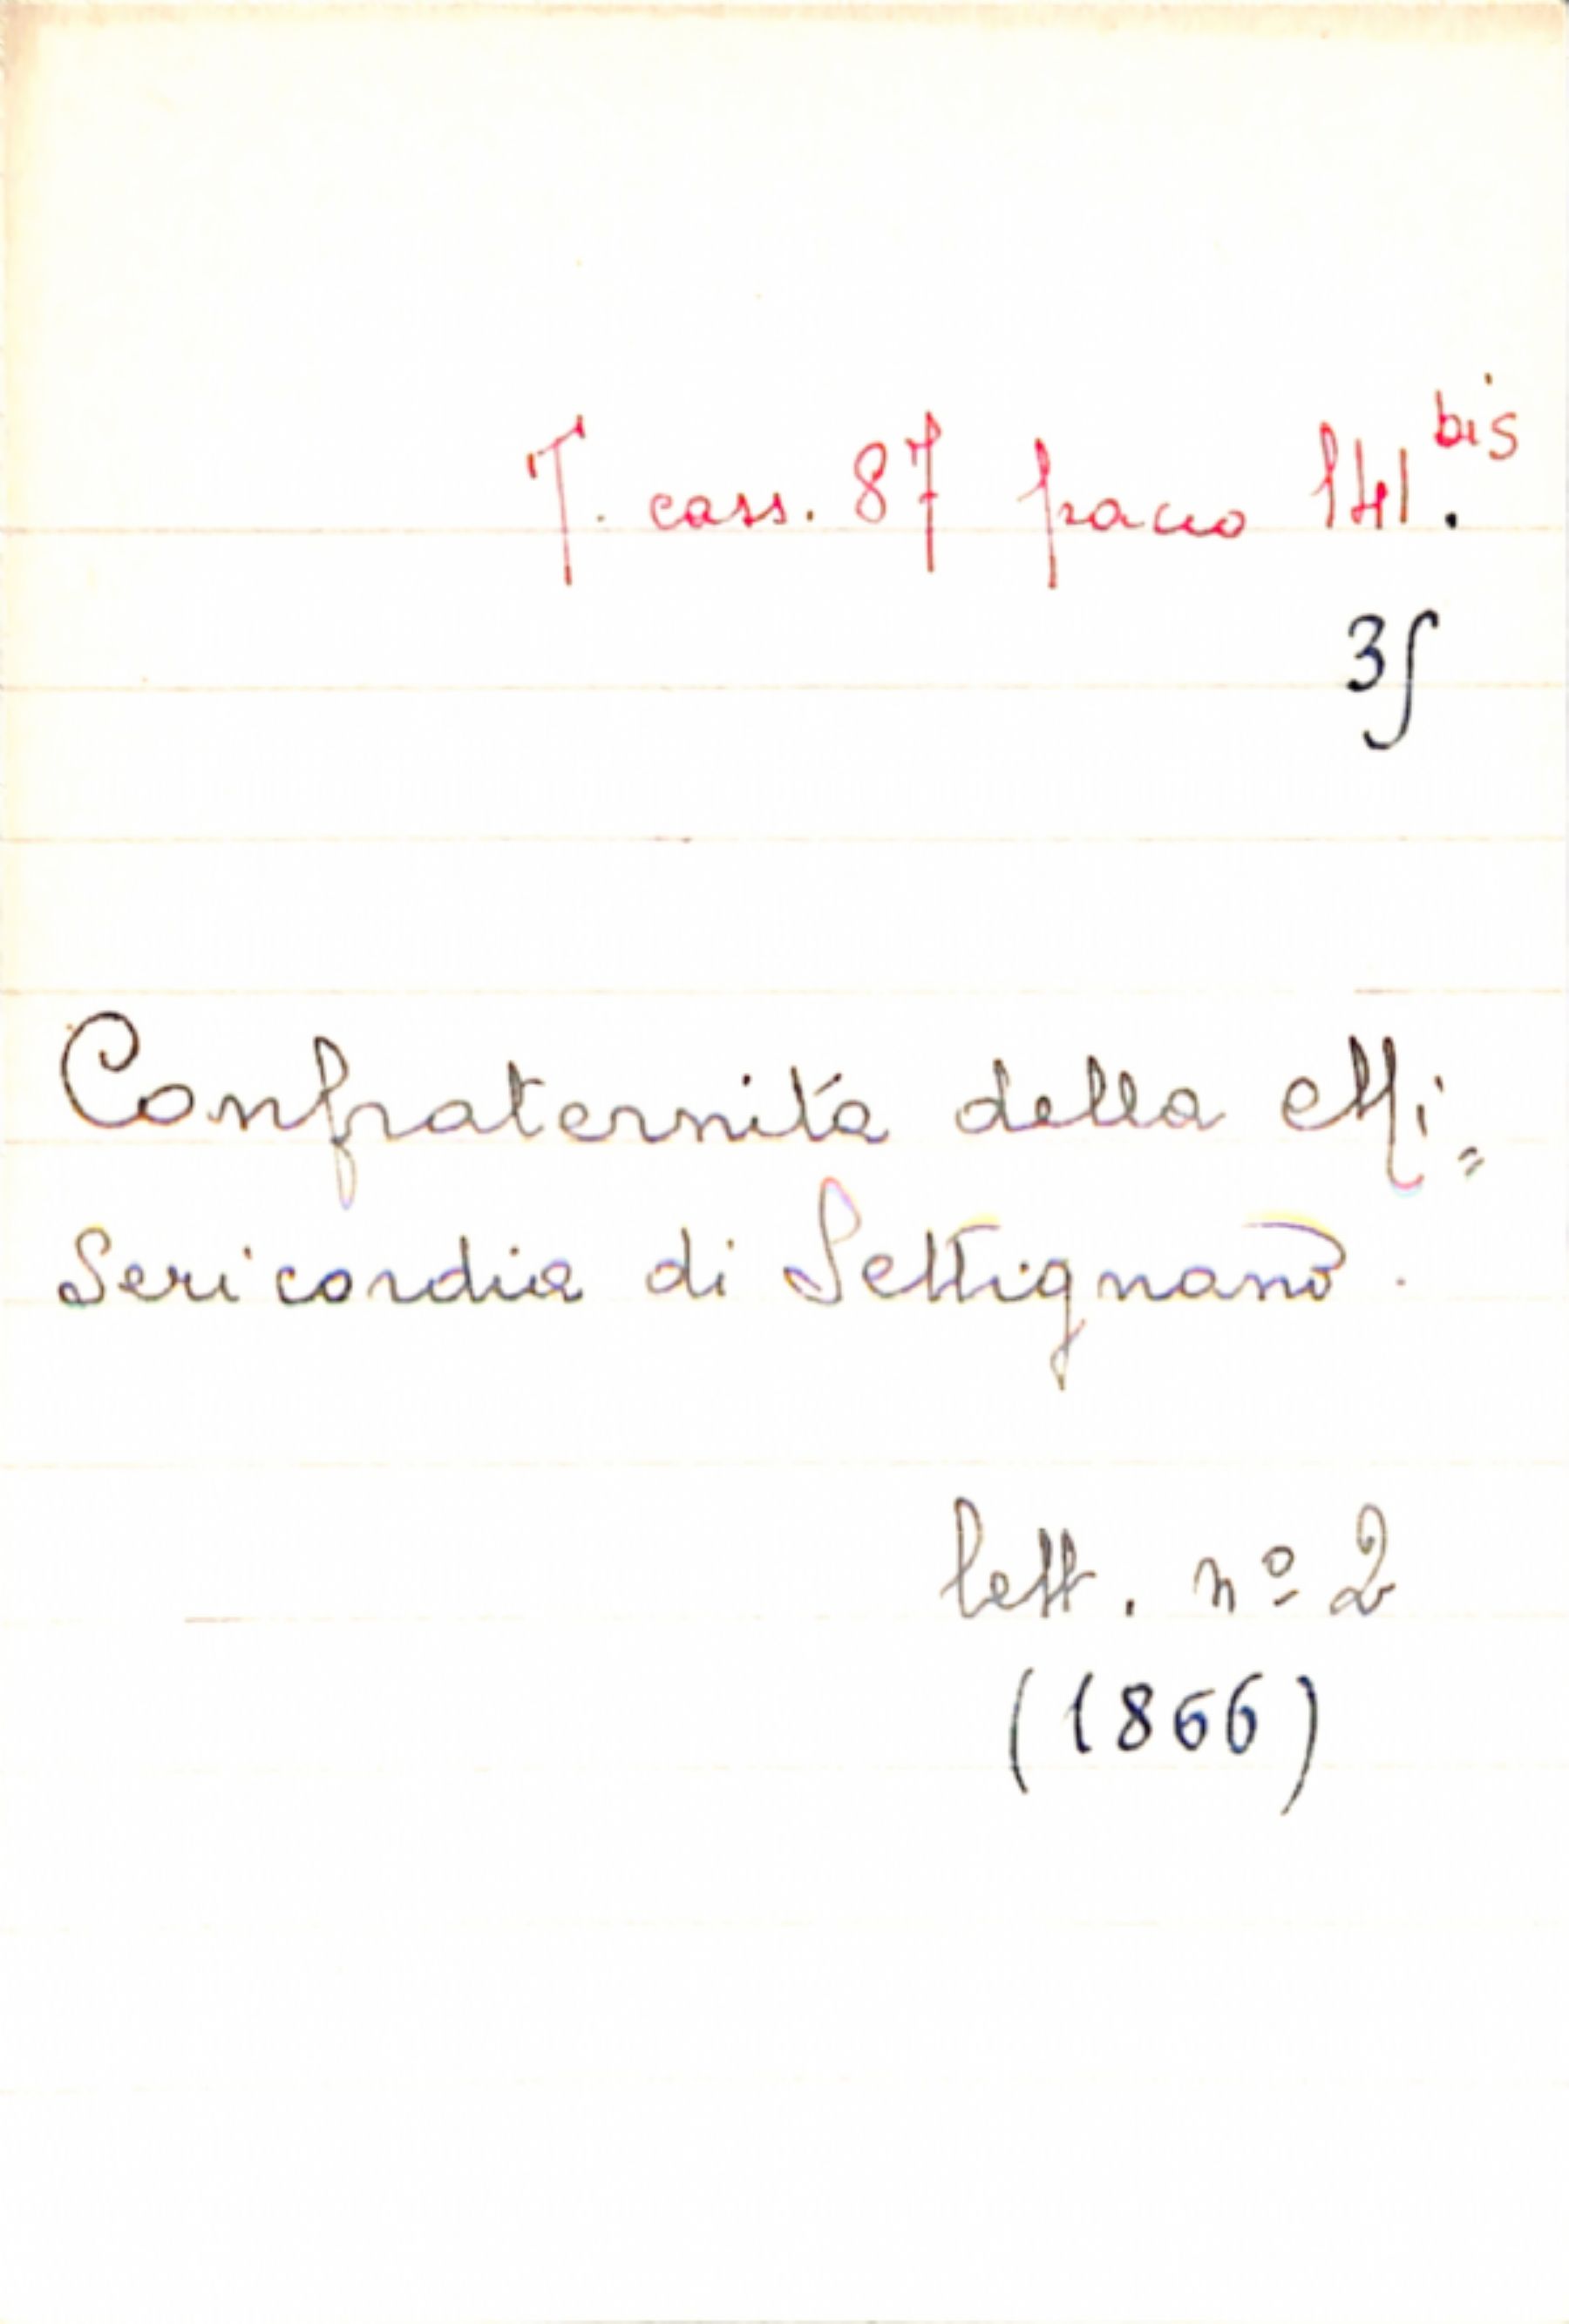 T. cass. 87 pacco 141.bis
35
Confraternità della Mi=
sericordia di Settignano.
lett. nº 2
(1866)